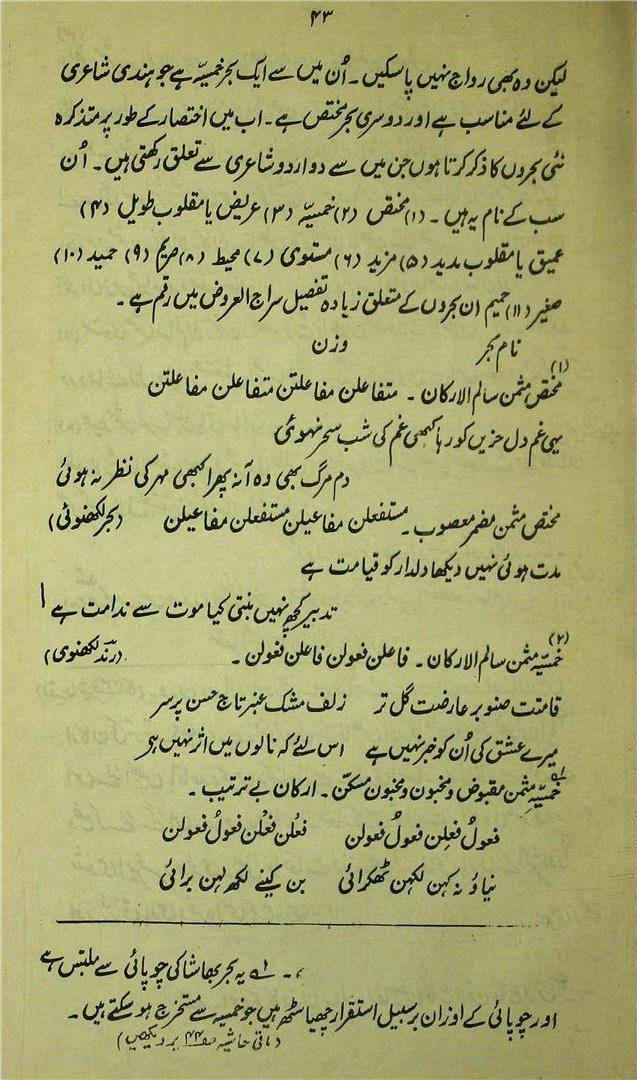 ۴۳
لیکن وہ بھی رواج نہیں پا سکیں۔ اُن میں سے ایک بحر خمسیّہ ہے جو ہندی شاعری
کے لئے مناسب ہے اور دوسری بحر مختص ہے۔ اب میں اختصار کے طور پر متذکرہ
نئی بحروں کا ذکر کرتا ہوں جن میں سے دو اردو شاعری سے تعلق رکھتی ہیں۔ اُن
سب کے نام یہ ہیں۔ (۱) مختص (۲) خمسیّہ (۳) عریض یا مقلوب طویل (۴)
عمیق یا مقلوب مدید (۵) مزید (۶) مستوی (۷) محیط (۸) صریم (۹) حمید (۱۰)
صغیر (۱۱) حمیم ان بحروں کے متعلق زیادہ تفصیل سراج العروض میں رقم ہے۔
نام بحر وزن
(۱) مختص مثمن سالم الارکان۔ متفاعلن مفاعلتن متفاعلن مفاعلتن
یہی غم دل حزیں کو رہا کبھی غم کی شب سحر نہ ہوئی
دم مرگ بھی وہ آ نہ پھرا کبھی مہر کی نظر نہ ہوئی
مختص مثمن مضمر معصوب۔ مستفعلن مفاعیلن مستفعلن مفاعیلن (بحر لکھنوئی)
مدت ہوئی نہیں دیکھا دلدار کو قیامت ہے
تدبیر کچھ نہیں بنتی کیا موت سے ندامت ہے
(۲) خمسیّہ مثمن سالم الارکان۔ فاعلن فعولن فاعلن فعولن۔ (رند لکھنوی)
قامتت صنوبر عارضت گل تر زلف مشک عنبر تاج حسن پر سر
میرے عشق کی اُن کو خبر نہیں ہے اس لئے کہ نالوں میں اثر نہیں ہی
خمسیّہ مثمن مقبوض و مخبون و مخبون مسکّن۔ ارکان بے ترتیب۔
فعولُ فعِلن فعولُ فعولن فعلُن فعْلن فعولُ فعولن
نیاؤ نہ کہن لکہن ٹھکرائی بن کینے لکھ لہن برائی
؍۔ ؎ یہ بحر بھاشا کی چوپائی سے ملتبس ہے
اور چوپائی کے اوزان بر سبیل استقرار چھیاسٹھ ہیں جو خمسیہ سے مستخرج ہو سکتے ہیں۔
(باقی حاشیہ صفحہ ۴۴ پر دیکھیں)